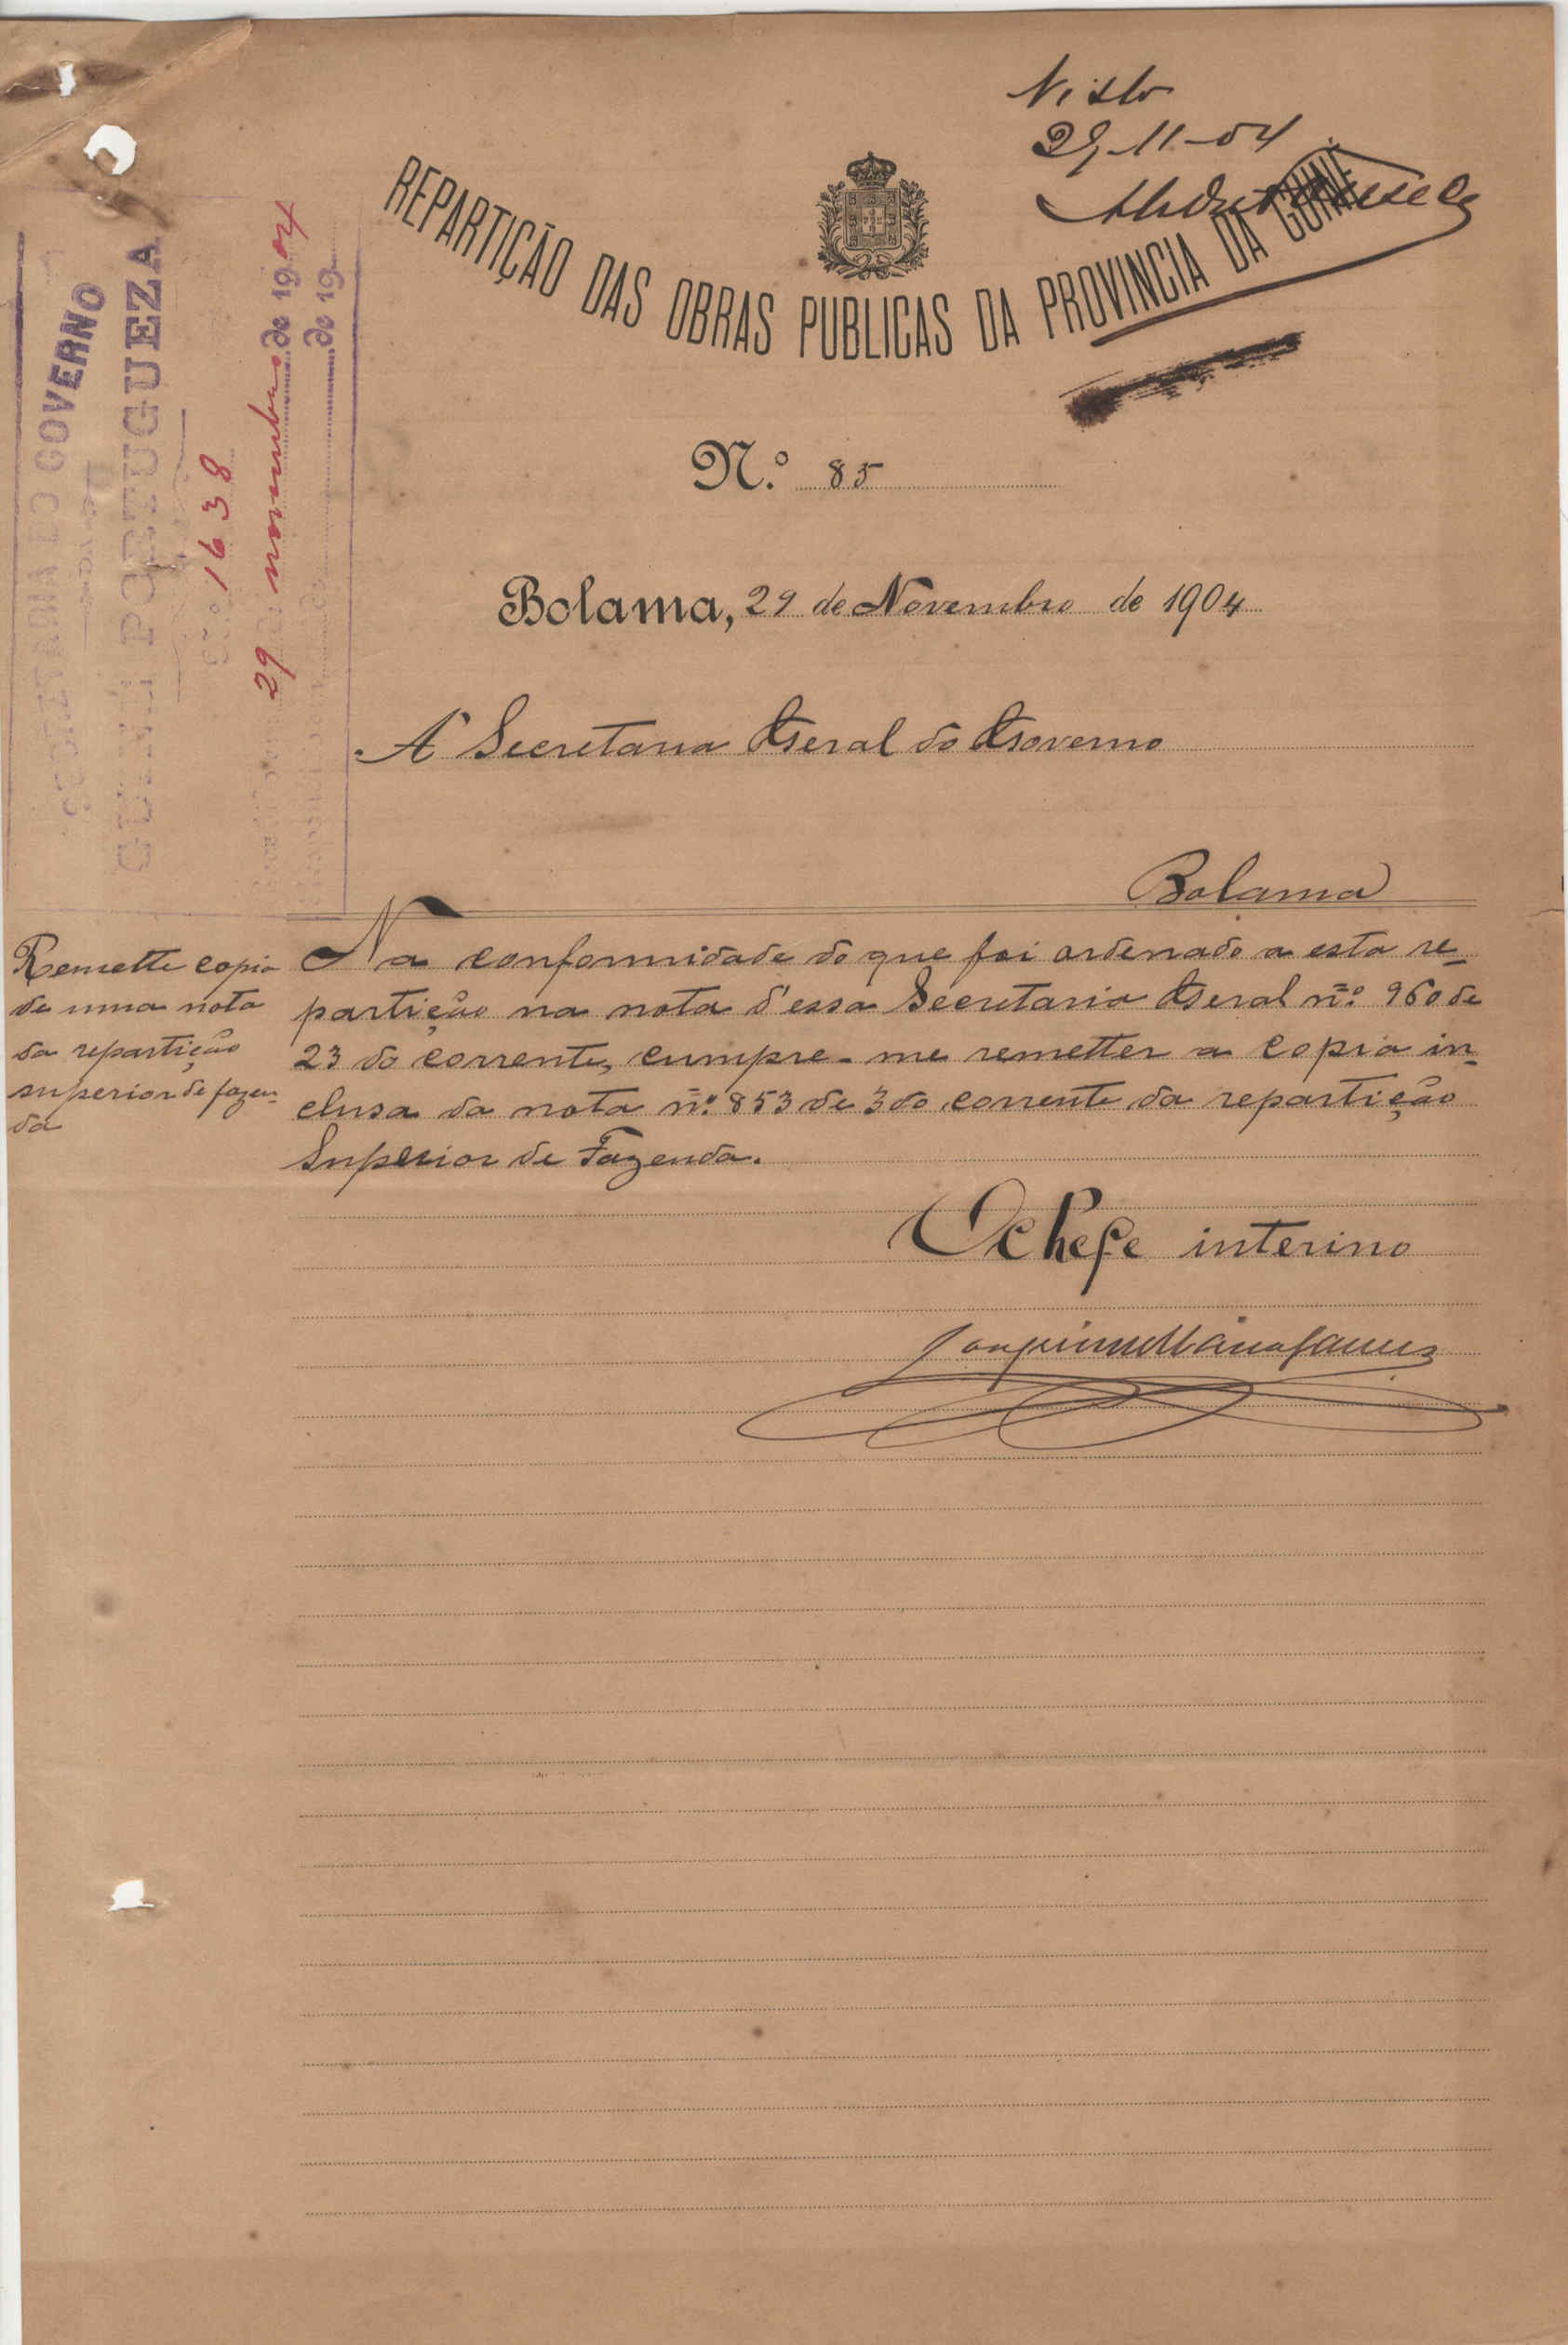 Visto
29-11-04
REPARTIÇÃO DAS OBRAS PUBLICAS DA PROVINCIA DA GUINÉ
SECRETARIA DO GOVERNO
GUINÉ PORTUGUEZA
1638
29 novembro de 1904
de 19
N.º 85
Bolama, 29 de Novembro de 1904
A' Secretaria Geral do Governo
Bolama
Remette copia
de uma nota
da repartição
superior de fazen-
da
Na conformidade do que foi ordenado a esta re-
partição na nota d'essa Secretaria Geral n.º 960 de
23 do corrente, cumpre-me remetter a copia in-
clusa da nota n.º 853 de 3 do corrente da repartição
Superior de Fazenda.
O chefe interino